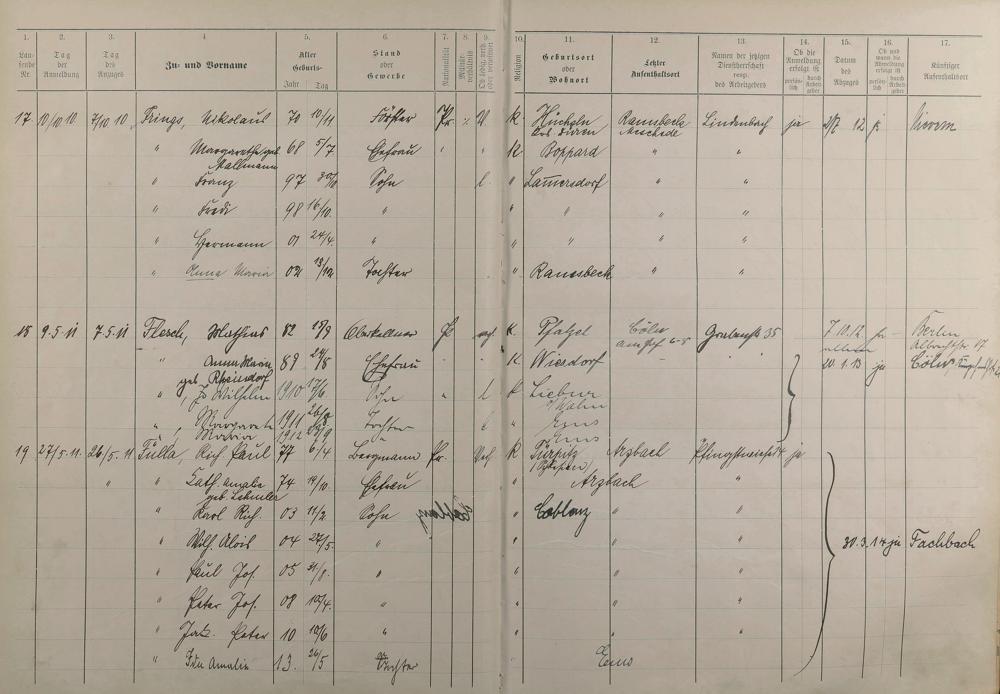 1. 2. 3. 4 5. 6. 7. 8. 9. 10. 11. 12. 13. 14. 15. 16. 17.
Lau-fende Nr. Tag der Anmeldung Tag des Anzuges Zu- und Vorname Alter Geburts- Jahr Tag Stand oder Gewerbe Nationalität Militär-verhältnis Ob ledig, verh. oder verwitwet Religion Geburtsort oder Wohnort Letzter Aufenthaltsort Namen der jetzigen Dienstherrschaft resp. des Arbeitgebers Ob die Anmeldung erfolgt ist persön-lich durch Arbeit-geber Datum des Abzuges Ob und wann die Abmeldung erfolgt ist persön-lich durch Arbeit-geber Künftiger Aufenthaltsort
17 10/10 10 7/10 10 Frings, Nikolaus 70 10/11 Förster Pr. V K Hücheln Ramsbeck Lindenbach ja 12 Nievern
Krs. Düren Meschede
" Margarethe geb. 68 5/7 Ehefrau " " K Boppard " "
Mallmann
" Franz 97 30/10 Sohn l. " Lamersdorf " "
" Fredi 98 16/10. " " " " "
" Hermann 01 24/4. " " " " "
" Anna Maria 02 13/12 Tochter " Ramsbeck " "
18 9.5.11 7.5.11 Flesch, Mathias 82 15/9 Oberkellner K Pfalzel Cöln Grabenstr 35 7.10.12 Berlin
allein Albrechtstr 17
" Anna Maria 89 Ehefrau K. Wiesdorf 20.1.13 ja Cöln,
geb. Rheindorf
" Wilhelm 1910 17/6 Sohn " l K Liebur
" Margareta 1911 26/8 Tochter " Ems
" Maria 1912 " Ems
19 27/5.11. 26/5.11 Tulla, Rich Paul 77 6/4 Bergmann Pr. Verh. K Türpitz Arzbach Pfingstwiese 14 ja
" " Cath. Amalie 74 19/10 Ehefrau " Arzbach "
geb. Lehmler
" Karl Rich. 03 11/2 Sohn " Coblenz " "
" Wilh. Alois 04 27/5. " " " " 30.3.14 ja Fachbach
" Paul Jos. 05 31/8. " " " "
" Peter Jos. 08 10/4. " " " "
" Peter 10 10/6 " " " "
" Ida Amalie 13. 26/5 Tochter Ems